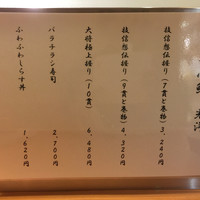 技信想伝握り(7貫と巻物) 3,240円
技信想伝握り(9貫と巻物) 4,320円
大将極上握り(10貫) 6,480円
バラチラシ寿司 2,700円
ふわふわしらす丼 1,620円